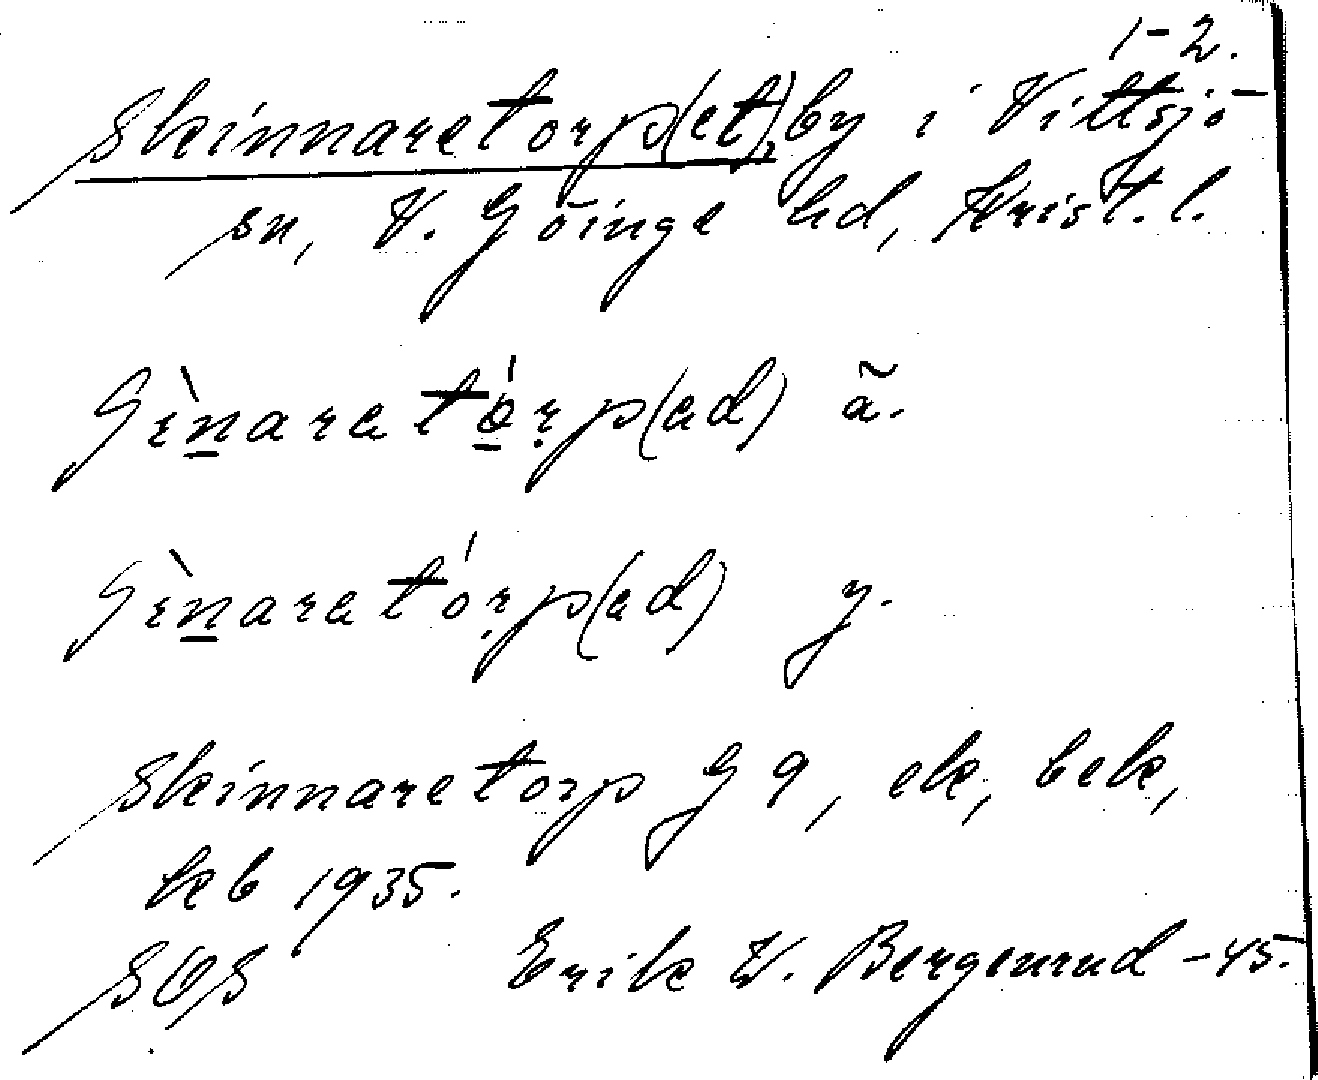 1-2.
Skinnaretorp(et), by i Vittsjö
sn, V. Göinge hd, Krist. l.
Gìnaretórp(ad) ã.
Gìnaretórp(ad) y.
Skinnaretorp G 9, ek, bek,
keb 1935.
SOS Erik W. Bergenrud -45.